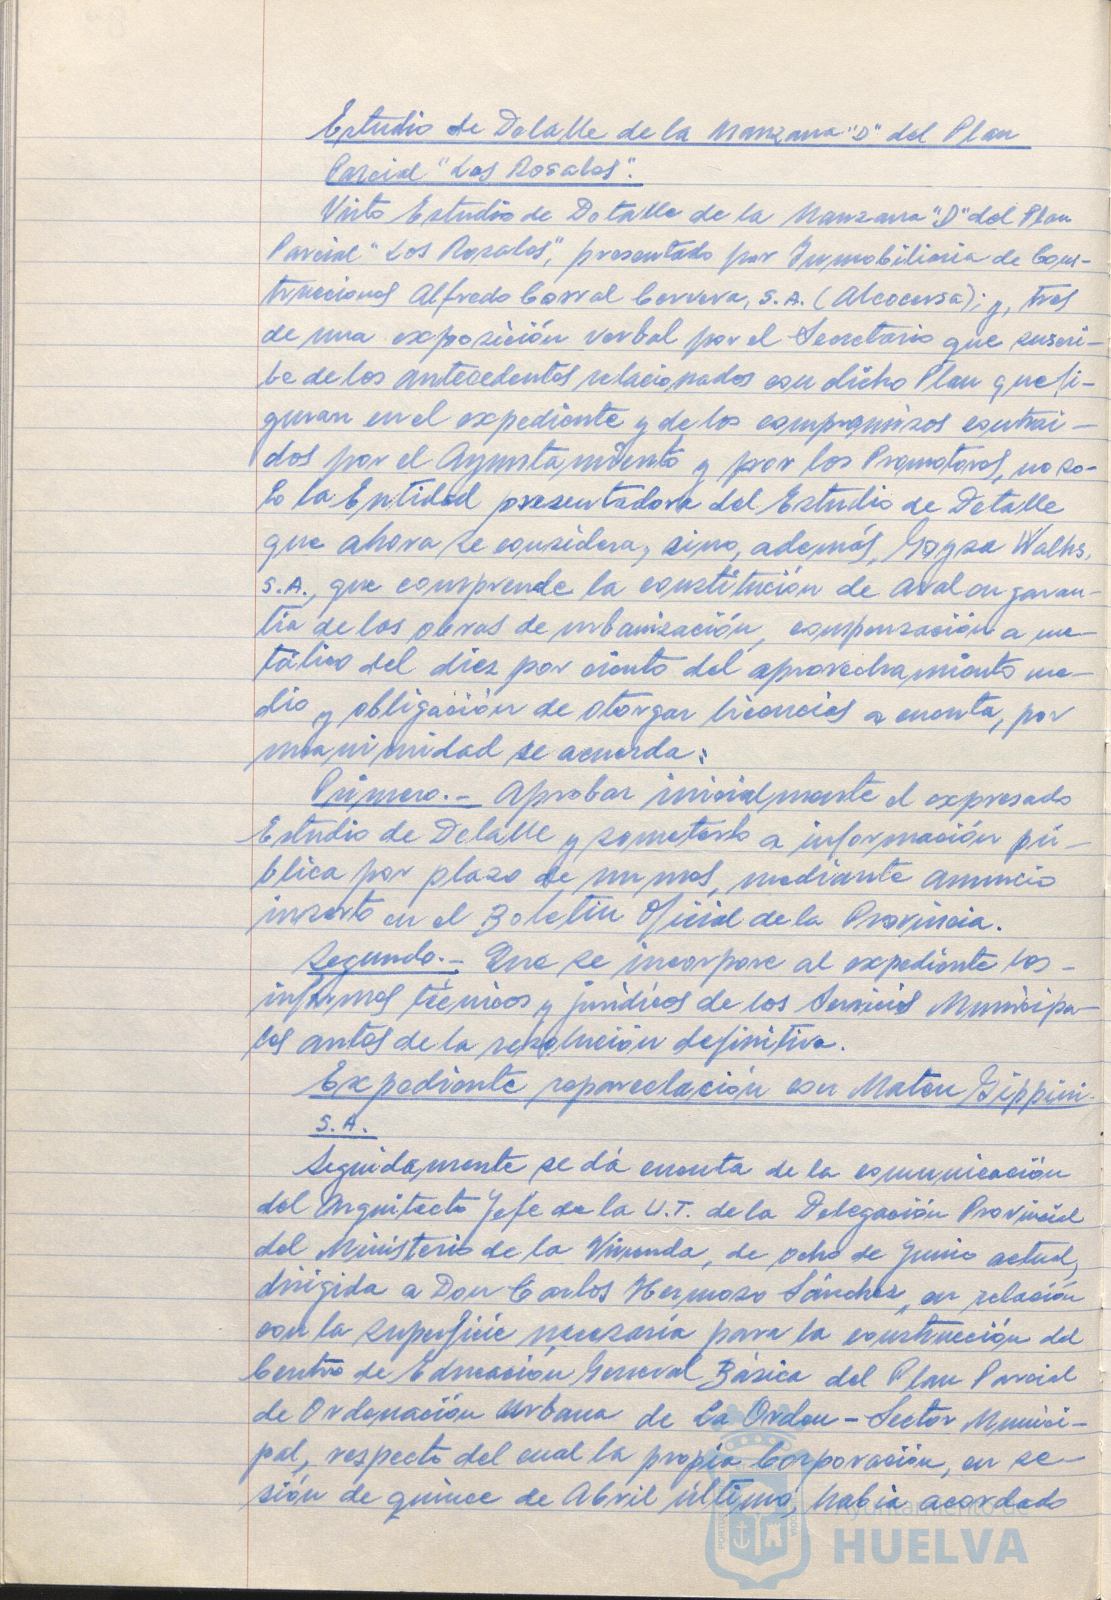 Estudio de Detalle de la Manzana "D" del Plan
Parcial "Los Rosales".
Visto Estudio de Detalle de la Manzana "D" del Plan
Parcial "Los Rosales", presentado por Inmobiliaria de Cons-
trucciones Alfredo Corral Cervera, S.A. (Alcocersa); y, tras
de una exposición verbal por el Secretario que suscri-
be de los antecedentes relacionados con dicho Plan que fi-
guran en el expediente y de los compromisos contrai-
dos por el Ayuntamiento y por los Promotores, no so-
lo la Entidad presentadora del Estudio de Detalle
que ahora se considera, sino, además,
S.A., que comprende la constitución de aval en garan-
tía de las obras de urbanización, compensación a me-
tálico del diez por ciento del aprovechamiento me-
dio y obligación de otorgar licencias a cuenta, por
unanimidad se acuerda:
Primero.- Aprobar inicialmente el expresado
Estudio de Detalle y someterlo a información pú-
blica por plazo de un mes, mediante anuncio
inserto en el Boletin Oficial de la Provincia.
Segundo.- Que se incorpore al expediente los
informes técnicos y jurídicos de los Servicios Municipa-
les antes de la resolución definitiva.
Expediente reparcelación con Mateu Gippini
S.A.
Seguidamente se dá cuenta de la comunicación
del Arquitecto Jefe de la U.T. de la Delegación Provincial
del Ministerio de la Vivienda, de ocho de Junio actual,
dirigida a Don Carlos Hermoso Sánchez, en relación
con la superficie necesaria para la construcción del
Centro de Educación General Básica del Plan Parcial
de Ordenación Urbana de La Orden - Sector Munici-
pal, respecto del cual la propia Corporación, en se-
sión de quince de Abril último, habia acordado
Ayuntamiento de
HUELVA